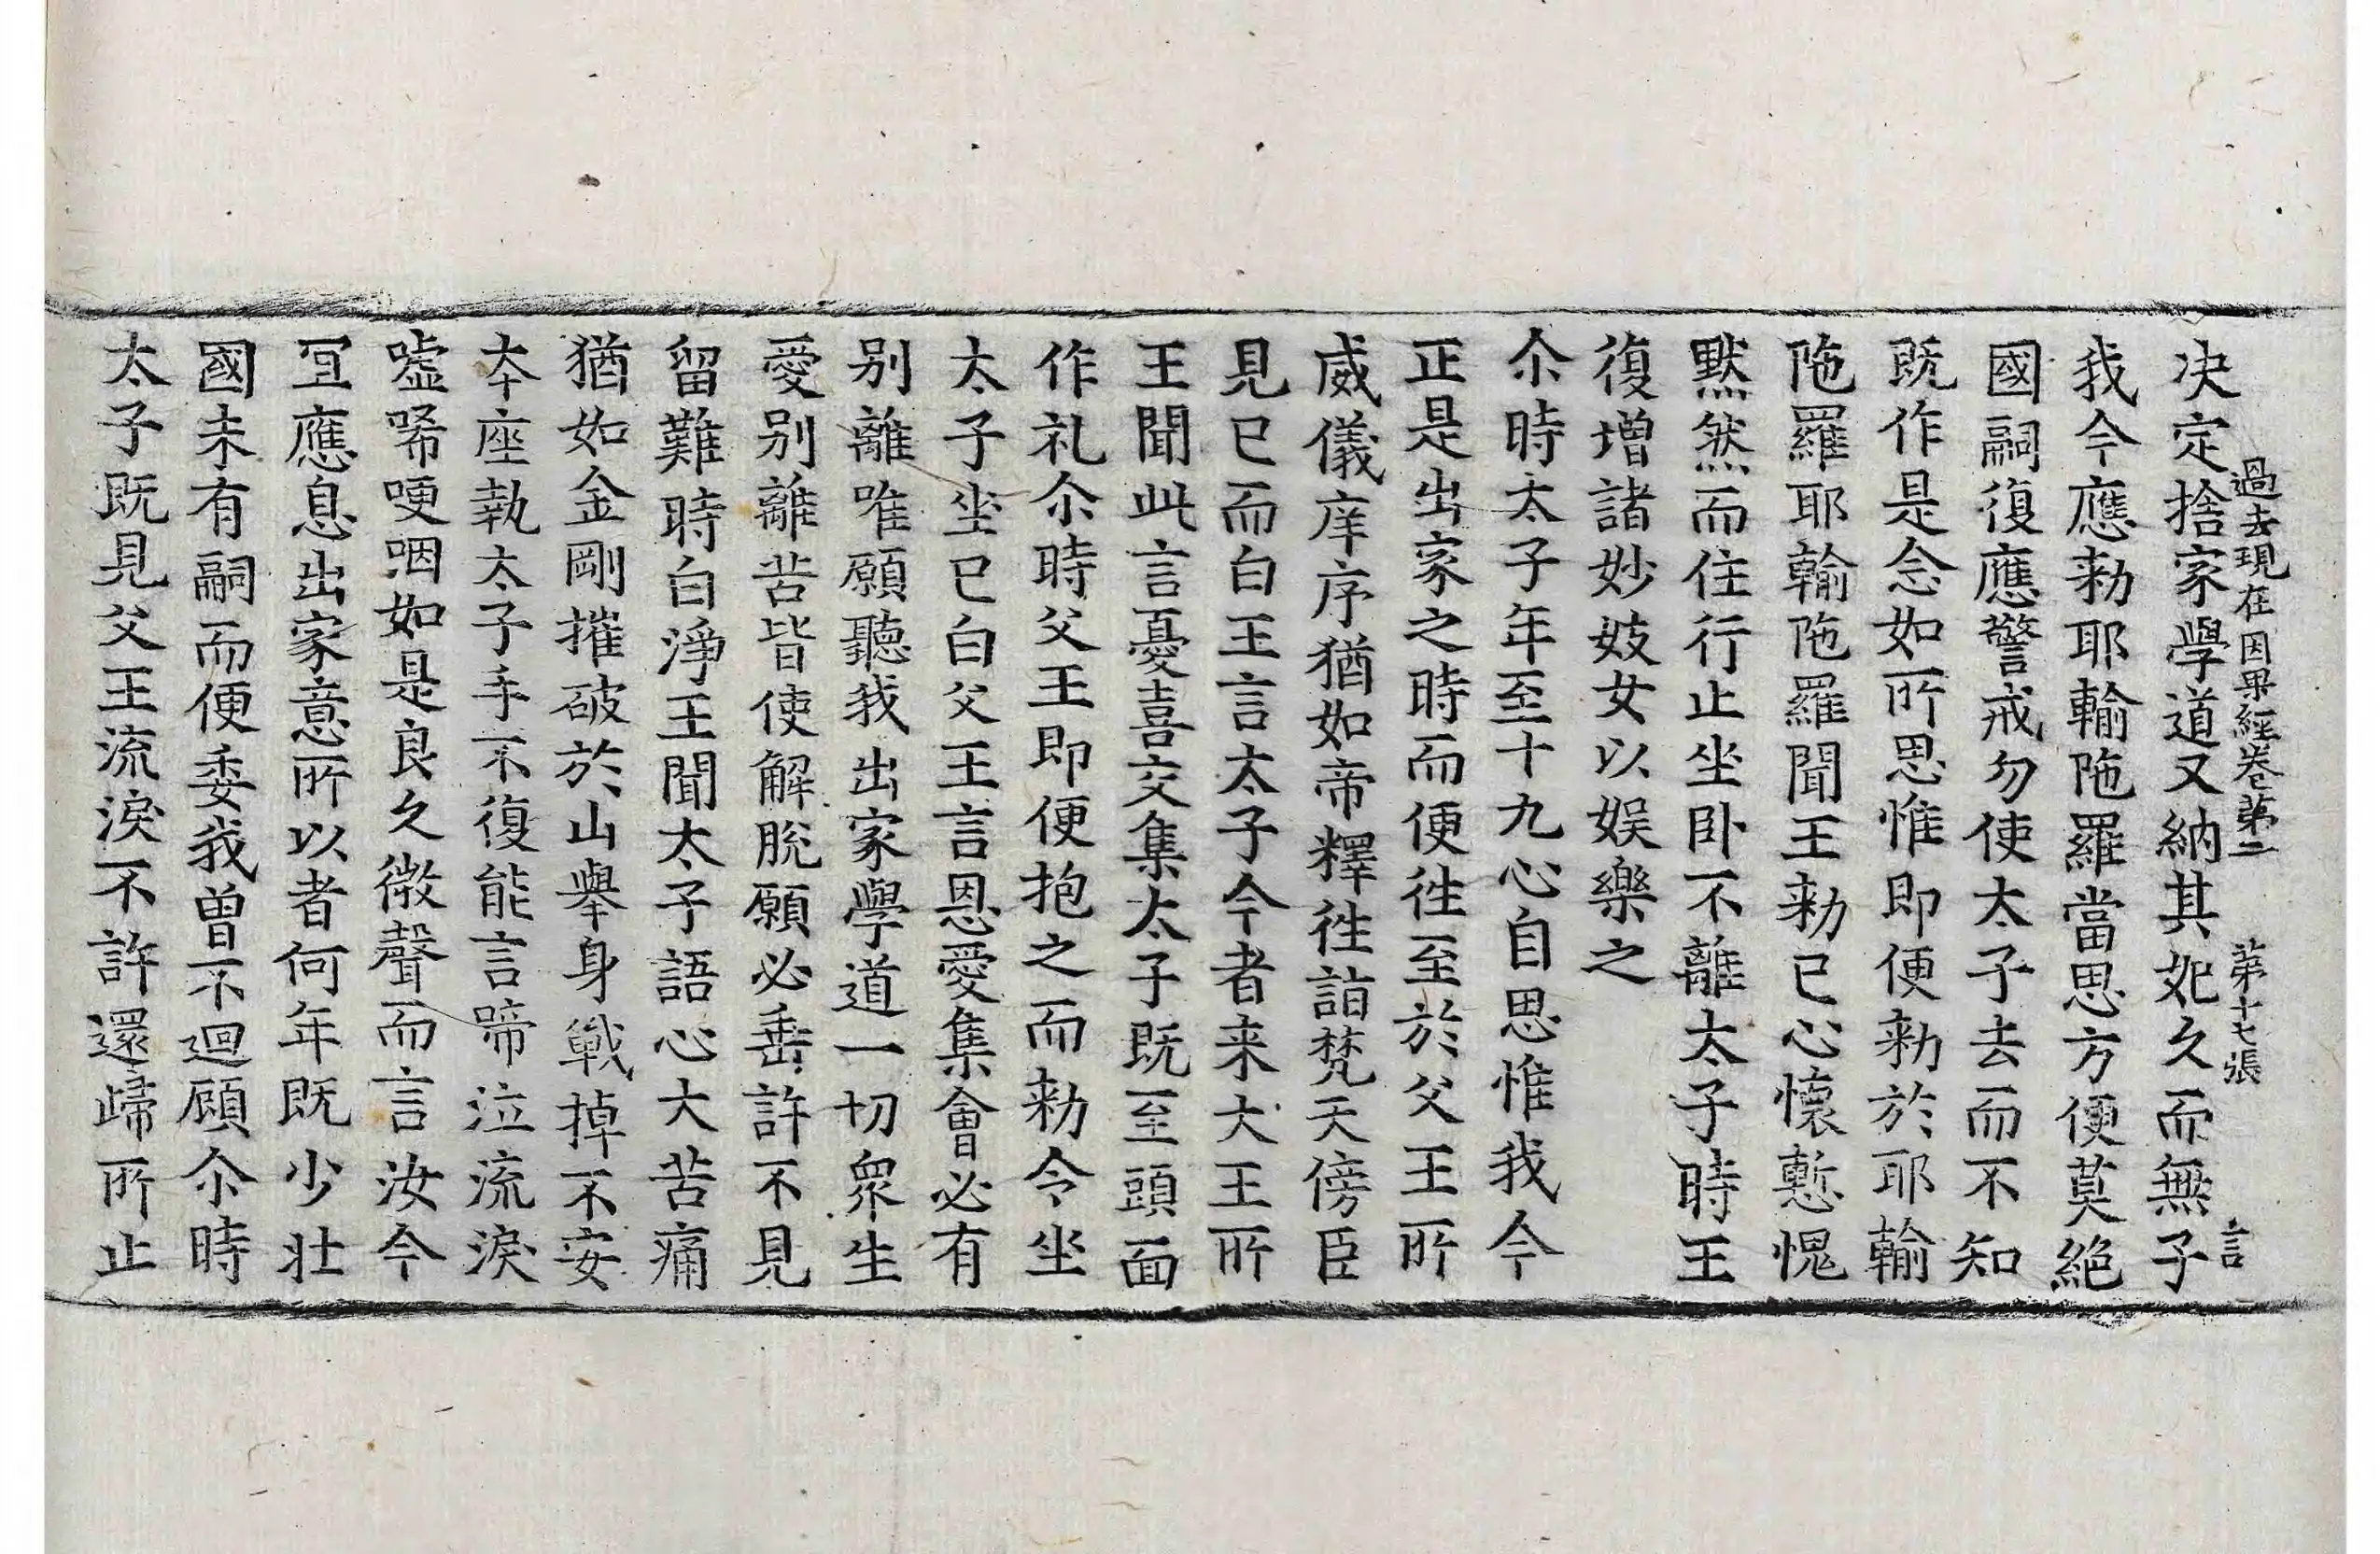 過去現在因果經卷第二　第十七張　言
决定捨家學道又納其妃久而無子
我今應勑耶輸陁羅當思方便莫絕
國嗣復應警戒勿使太子去而不知
既作是念如所思惟即便勑於耶輸
陁羅耶輸陁羅聞王勑已心懷慙愧
默然而住行止坐卧不離太子時王
復增諸妙妓女以娛樂之
尒時太子年至十九心自思惟我今
正是出家之時而便往至於父王所
威儀庠序猶如帝釋往詣梵天傍臣
見已而白王言太子今者来大王所
王聞此言憂喜交集太子既至頭面
作礼尒時父王即便抱之而勑令坐
太子坐已白父王言恩愛集會必有
别離唯願聽我出家學道一切衆生
愛别離苦皆使解脫願必垂許不見
留難時白淨王聞太子語心大苦痛
猶如金剛摧破於山舉身戰掉不安
本座執太子手不復能言啼泣流淚
噓唏哽咽如是良久微聲而言汝今
冝應息出家意所以者何年既少壮
國未有嗣而便委我曽不迴顧尒時
太子既見父王流淚不許還歸所止